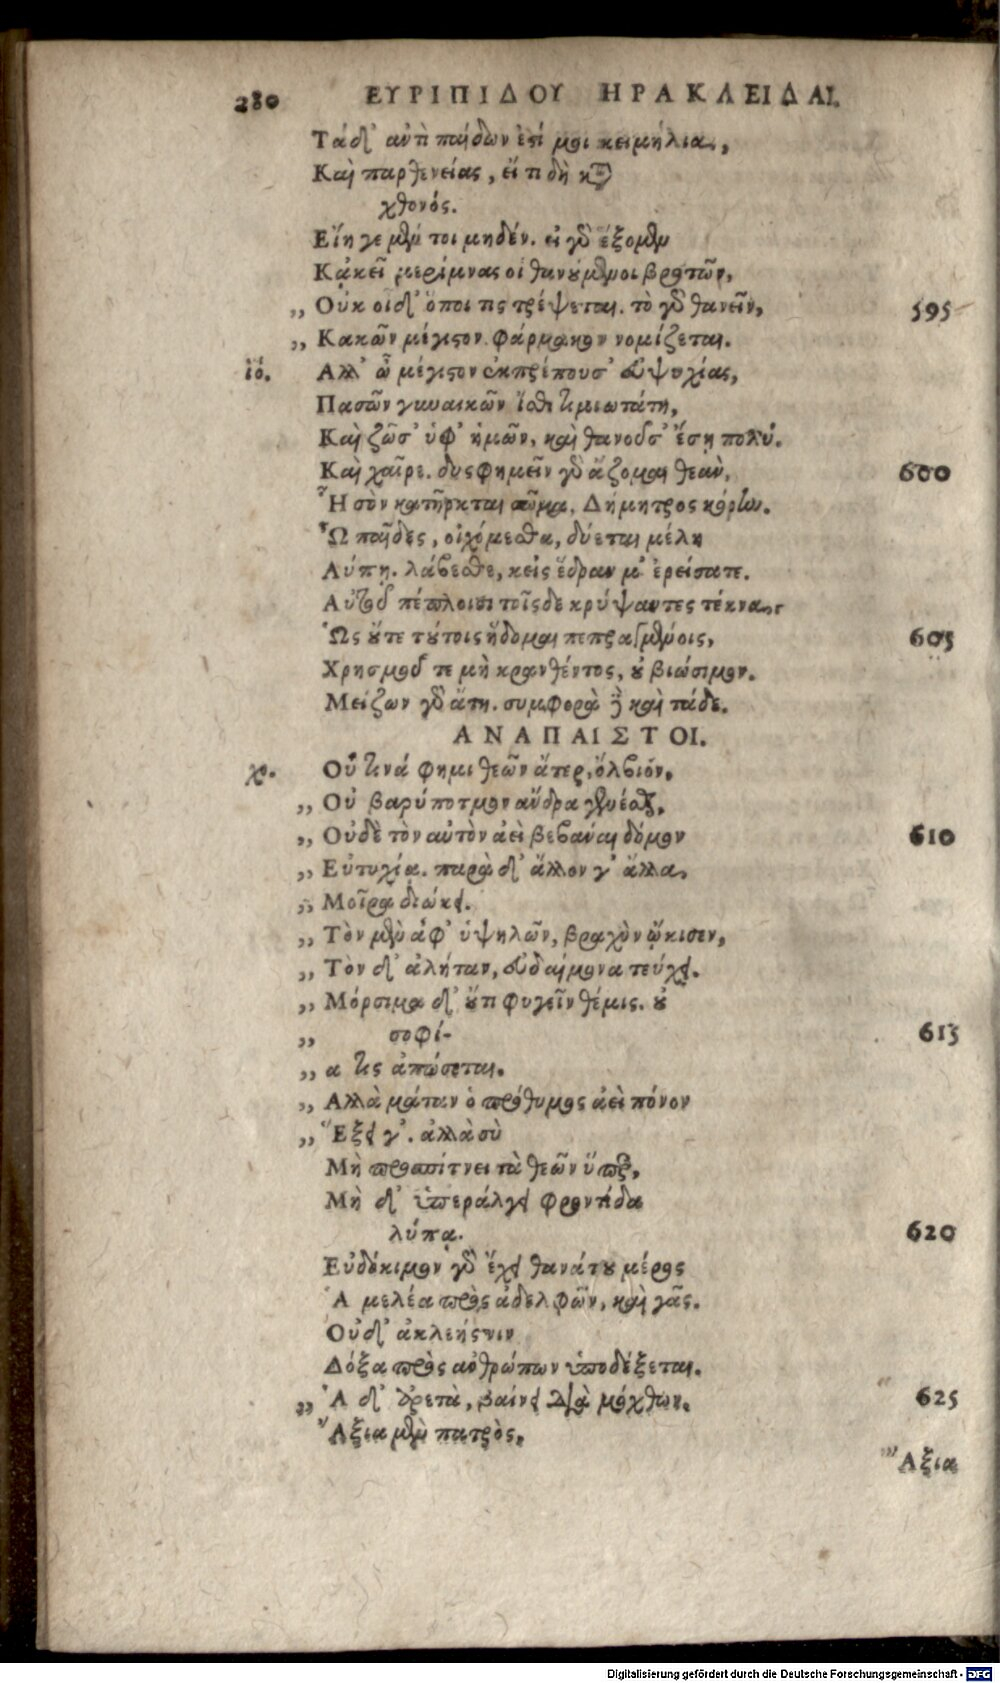 280 ΕΥΡΙΠΙΔΟΥ ΗΡΑΚΛΕΙΔΑΙ.
Τάδ' αὐτὶ παίδων ἐστί μοι κειμήλια,
Καὶ παρθενείας, εἴ τι δὴ κτ̀
χθονός.
Εἴη γε μέν τοι μηδέν. εἰ γὰρ ἕξομεν
Κἀκεῖ μερίμνας οἱ θανούμενοι βροτῶν,
,, Οὐκ οἶδ' ὅποι τις τρέψεται. τὸ γὰρ θανεῖν, 595
,, Κακῶν μέγιστον φάρμακον νομίζεται.
ἰό. Αλλ' ὦ μέγιστον ἐκπρέπουσ' εὐψυχίας,
Πασῶν γυναικῶν ἴσθι τιμιωτάτη,
Καὶ ζῶσ' ὑφ' ἡμῶν, καὶ θανοῦσ' ἔσῃ πολύ.
Καὶ χαῖρε. δυσφημεῖν γὰρ ἅζομαι θεὰν, 600
Ἧ σὸν κατῆρκται σῶμα, Δήμητρος κόρίω.
Ὦ παῖδες, οἰχόμεσθα, δύεται μέλη
Λύπῃ. λάβεσθε, κεἰς ἕδραν μ' ἐρείσατε.
Αὐτοῦ πέπλοισι τοῖσδε κρύψαντες τέκνα,
Ὡς οὔτε τούτοις ἥδομαι πεπραγμένοις, 605
Χρησμοῦ τε μὴ κρανθέντος, οὐ βιώσιμον.
Μείζων γὰρ ἄτη. συμφορὰ δὲ καὶ τάδε.
ΑΝΑΠΑΙΣΤΟΙ.
χο. Οὔ τινά φημι θεῶν ἄτερ, ὄλβιόν,
,, Οὐ βαρύποτμον ἄνδρα γενέσθ,
,, Οὐδὲ τὸν αὐτὸν ἀεὶ βεβαναι δόμον 610
,, Εὐτυχία. παρὰ δ' ἄλλον γ' ἄλλα,
,, Μοῖρα διώκει.
,, Τὸν μὲν ἀφ' ὑψηλῶν, βραχὺν ᾤκισεν,
,, Τὸν δ' ἀλήταν, εὐδαίμονα τεύχει.
,, Μόρσιμα δ' οὔτι φυγεῖν θέμις. οὐ
,, σοφί- 615
,, α τις ἀπώσεται.
,, Αλλὰ μάταν ὁ πρόθυμος ἀεὶ πόνον
,, Ἕξει γ'. ἀλλὰ σὺ
Μὴ προσπίτνει τὰ θεῶν ὕπερ,
Μὴ δ' ὑπεράλγει φροντίδα
λύπᾳ. 620
Εὐδόκιμον γὰρ ἔχει θανάτου μέρος
Ἁ μελέα πρὸς ἀδελφῶν, καὶ γᾶς.
Οὐδ' ἀκλεήςνιν
Δόξα πρὸς ἀνθρώπων ὑποδέξεται.
,, Ἁ δ' ἀρετὰ, βαίνει διὰ μόχθων. 625
Ἄξια μὲν πατρὸς,
Ἄξια
Digitalisierung gefördert durch die Deutsche Forschungsgemeinschaft - DFG